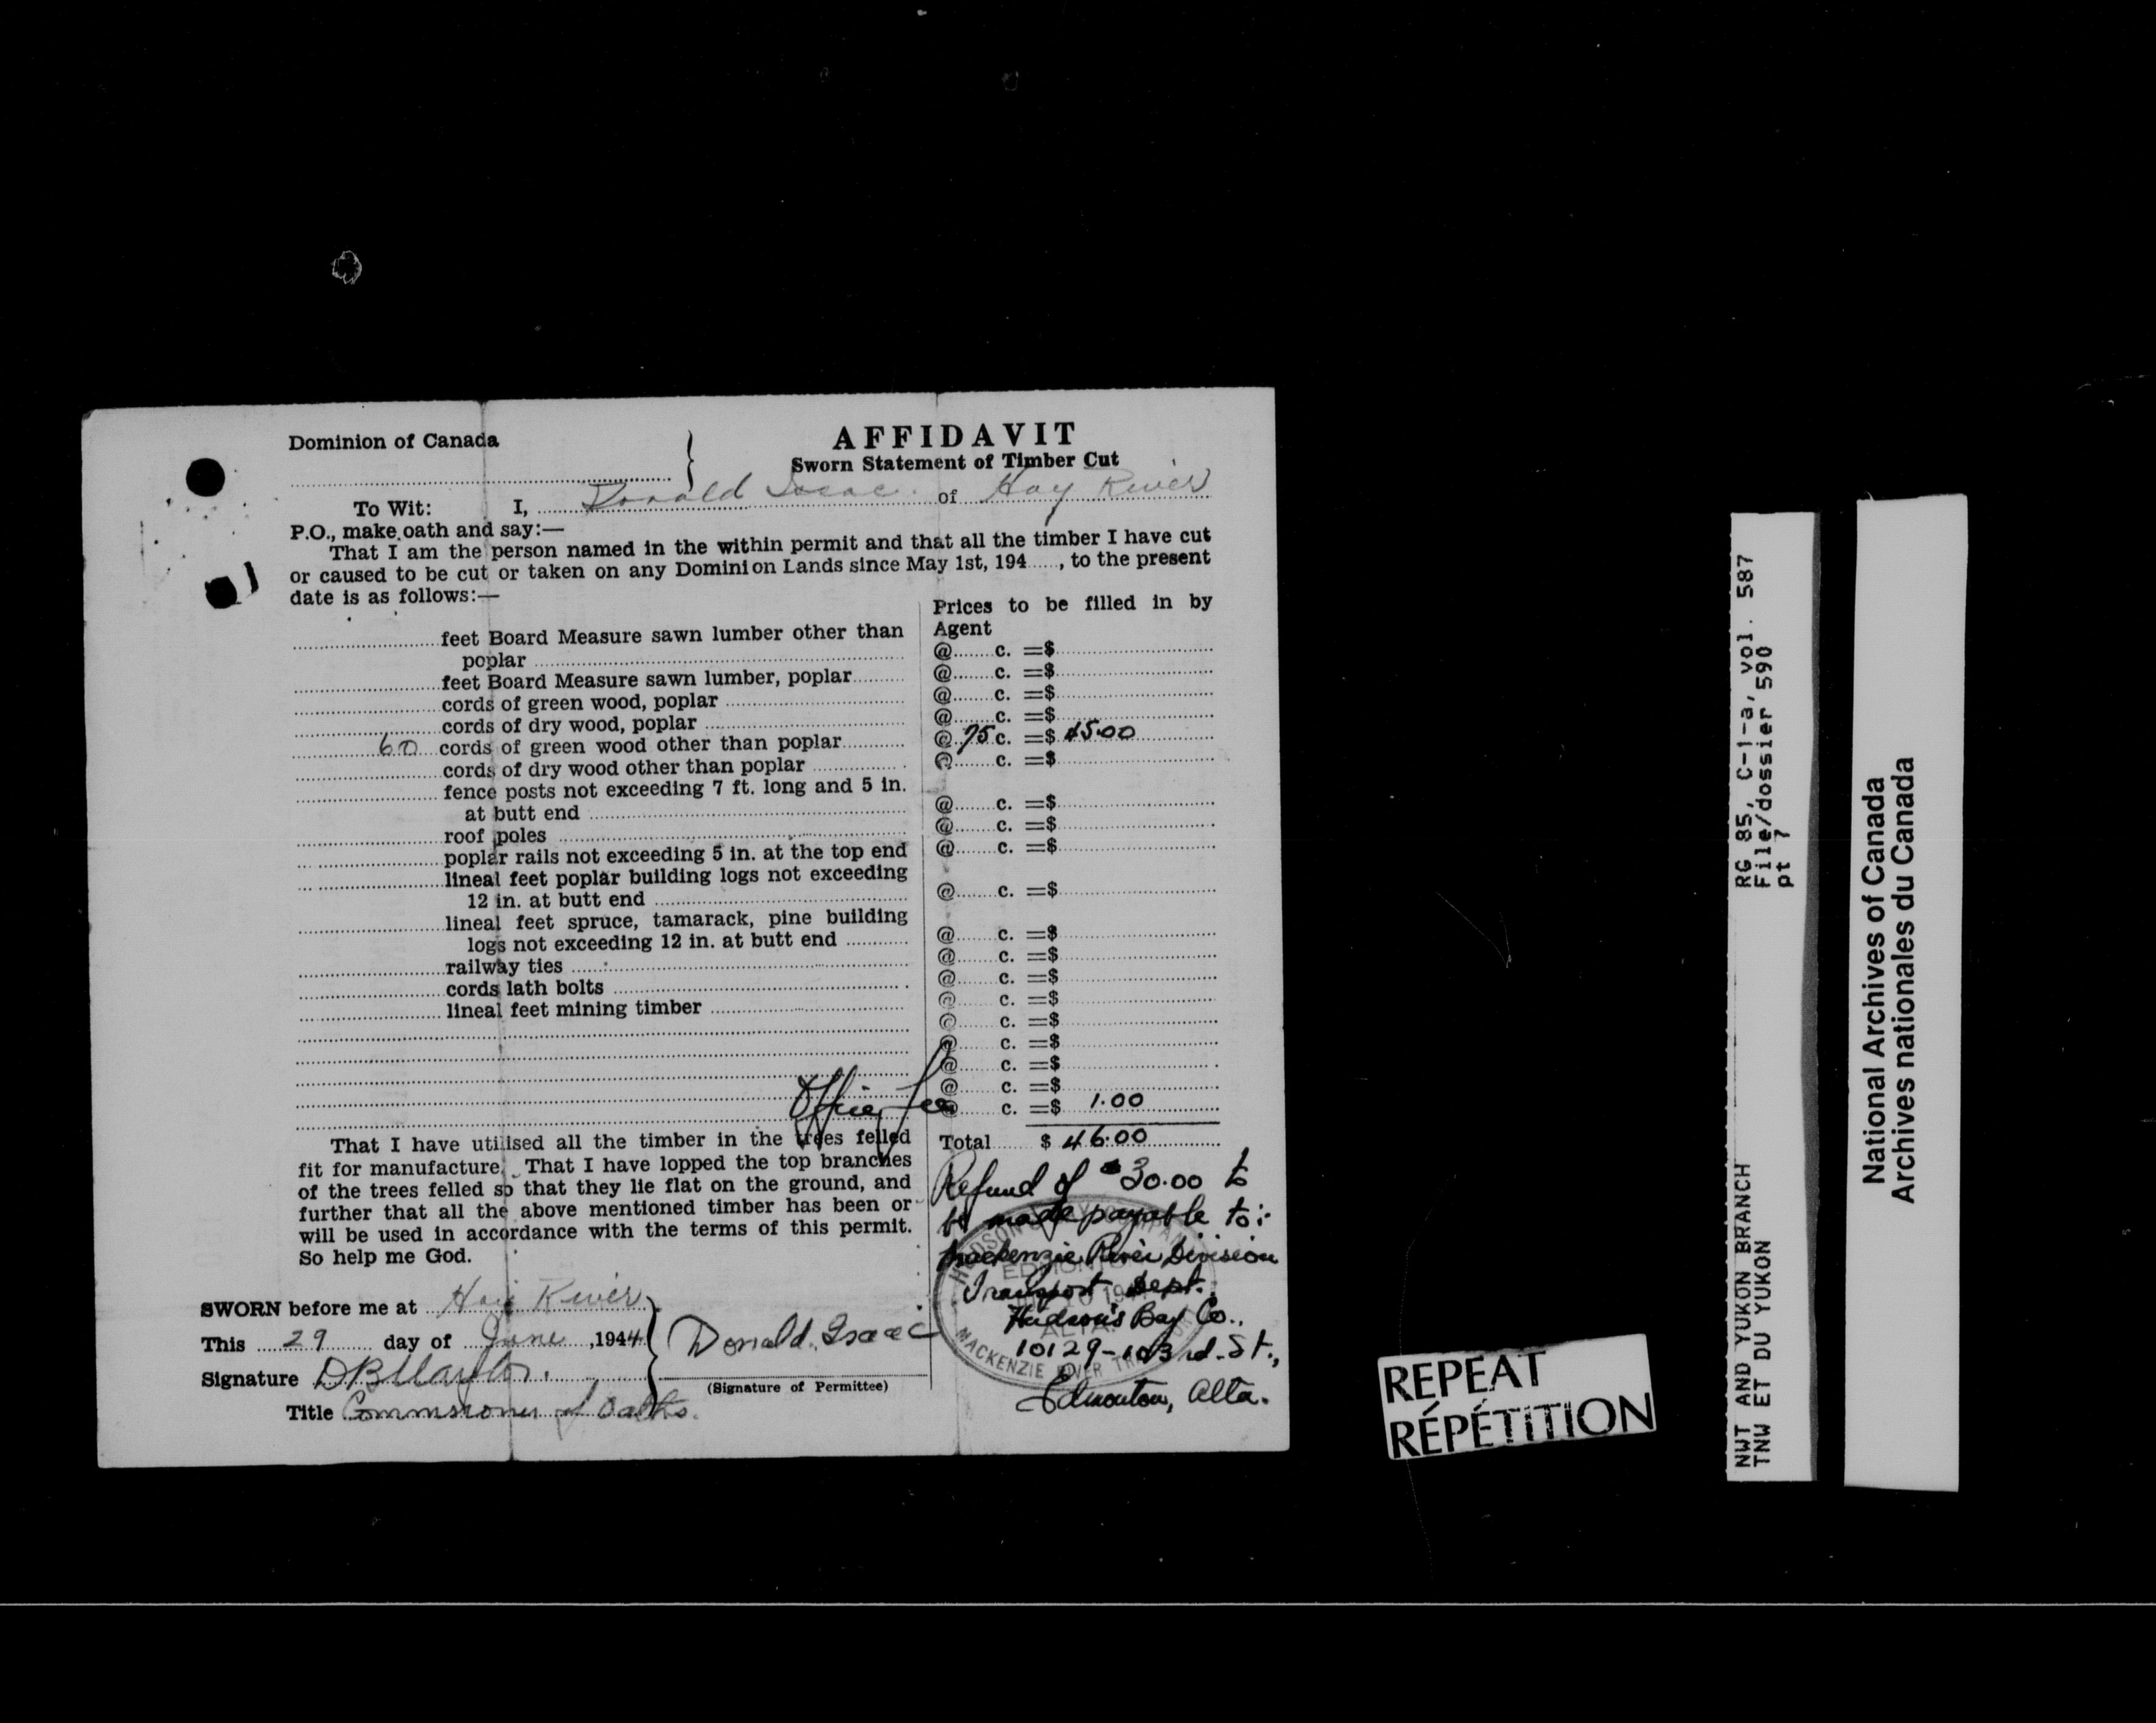 Dominion of Canada
AFFIDAVIT
Sworn Statement of Timber Cut
To Wit: I, Donald Isaac of Hay River
P.O., make oath and say:—
That I am the person named in the within permit and that all the timber I have cut
or caused to be cut or taken on any Dominion Lands since May 1st, 194....., to the present
date is as follows:—
Prices to be filled in by
Agent
feet Board Measure sawn lumber other than
poplar @ c. =$
feet Board Measure sawn lumber, poplar @ c. =$
cords of green wood, poplar @ c. =$
cords of dry wood, poplar @ c. =$
60 cords of green wood other than poplar @ 75 c. =$ 45.00
cords of dry wood other than poplar @ c. =$
fence posts not exceeding 7 ft. long and 5 in.
at butt end @ c. =$
roof poles @ c. =$
poplar rails not exceeding 5 in. at the top end @ c. =$
lineal feet poplar building logs not exceeding
12 in. at butt end @ c. =$
lineal feet spruce, tamarack, pine building
logs not exceeding 12 in. at butt end @ c. =$
railway ties @ c. =$
cords lath bolts @ c. =$
lineal feet mining timber @ c. =$
@ c. =$
@ c. =$
@ c. =$
@ c. =$
Office fee @ c. =$ 1.00
Total $ 46.00
That I have utilised all the timber in the trees felled
fit for manufacture. That I have lopped the top branches
of the trees felled so that they lie flat on the ground, and
further that all the above mentioned timber has been or
will be used in accordance with the terms of this permit.
So help me God.
Refund of $30.00 to
be made payable to:-
Mackenzie River Division
Transport Dept.
Hudson's Bay Co.,
10129-103rd. St.,
Edmonton, Alta.
HUDSON'S BAY COMPANY
EDMONTON
10 194
ALTA.
MACKENZIE RIVER
SWORN before me at Hay River
This 29 day of June, 1944
Signature
Title Commsioner of Oaths.
Donald. Isaac
(Signature of Permittee)
REPEAT
RÉPÉTITION
RG 85, C-1-a, vol. 587
File/dossier 590
pt 7
NWT AND YUKON BRANCH
TNW ET DU YUKON
National Archives of Canada
Archives nationales du Canada